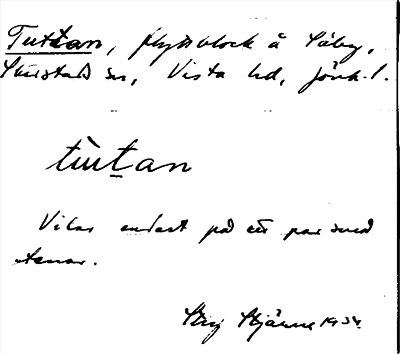 Tuttan, flyttblock å Säby,
sn, Vista hd, Jönk. l.
tùt̲an
Vilar endast på ett par små
stenar.
Stig Stjärne 1934.